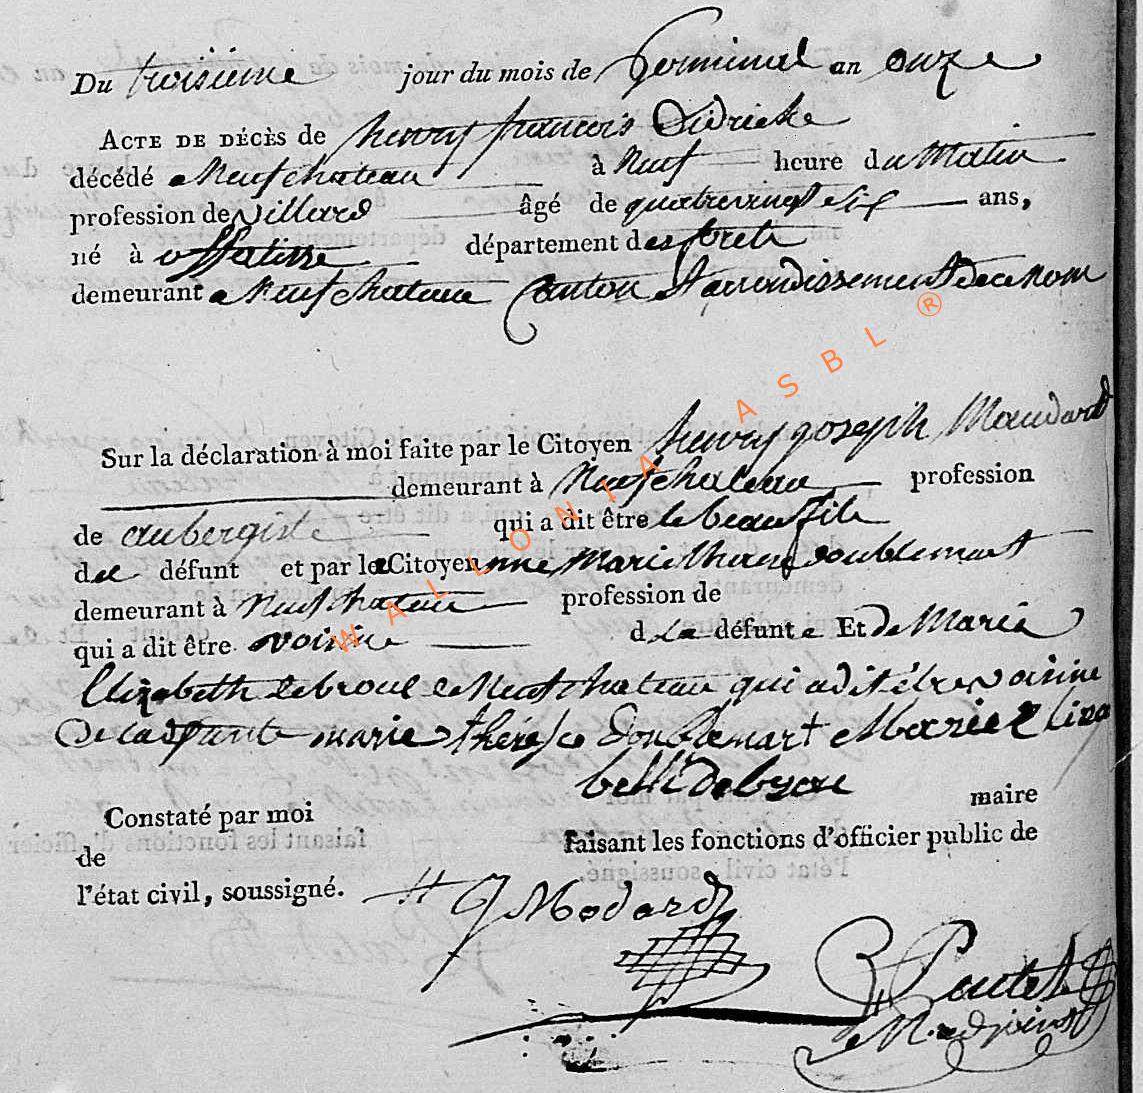 Du troisieme jour du mois de Germinal an onze
ACTE DE DÉCÈS de henry francois Didriche
décédé a Neufchateau à Neuf heure du Matin
profession de Villard âgé de quatrevingt six ans,
né à offaisse département des forets
demeurant a Neufchateau Canton et arrondissement de ce nom
Sur la déclaration à moi faite par le Citoyen henry joseph Maudard
demeurant à Neufchateau profession
de aubergiste qui a dit être le beau fils
del défunt et par la Citoyenne Marie therese doublemart
demeurant à Neufchateau profession de
qui a dit être voisine d la défunte Et de Marie
Elizabeth debroux de Neufchateau qui a dit être voisine
De la marie thérésse Doublemart et Marie Eliza
beth debroux
Constaté par moi maire
de faisant les fonctions d'officier public de
l'état civil, soussigné. H J Modard
Poutelt
adjoint
WALLONIA ASBL ®